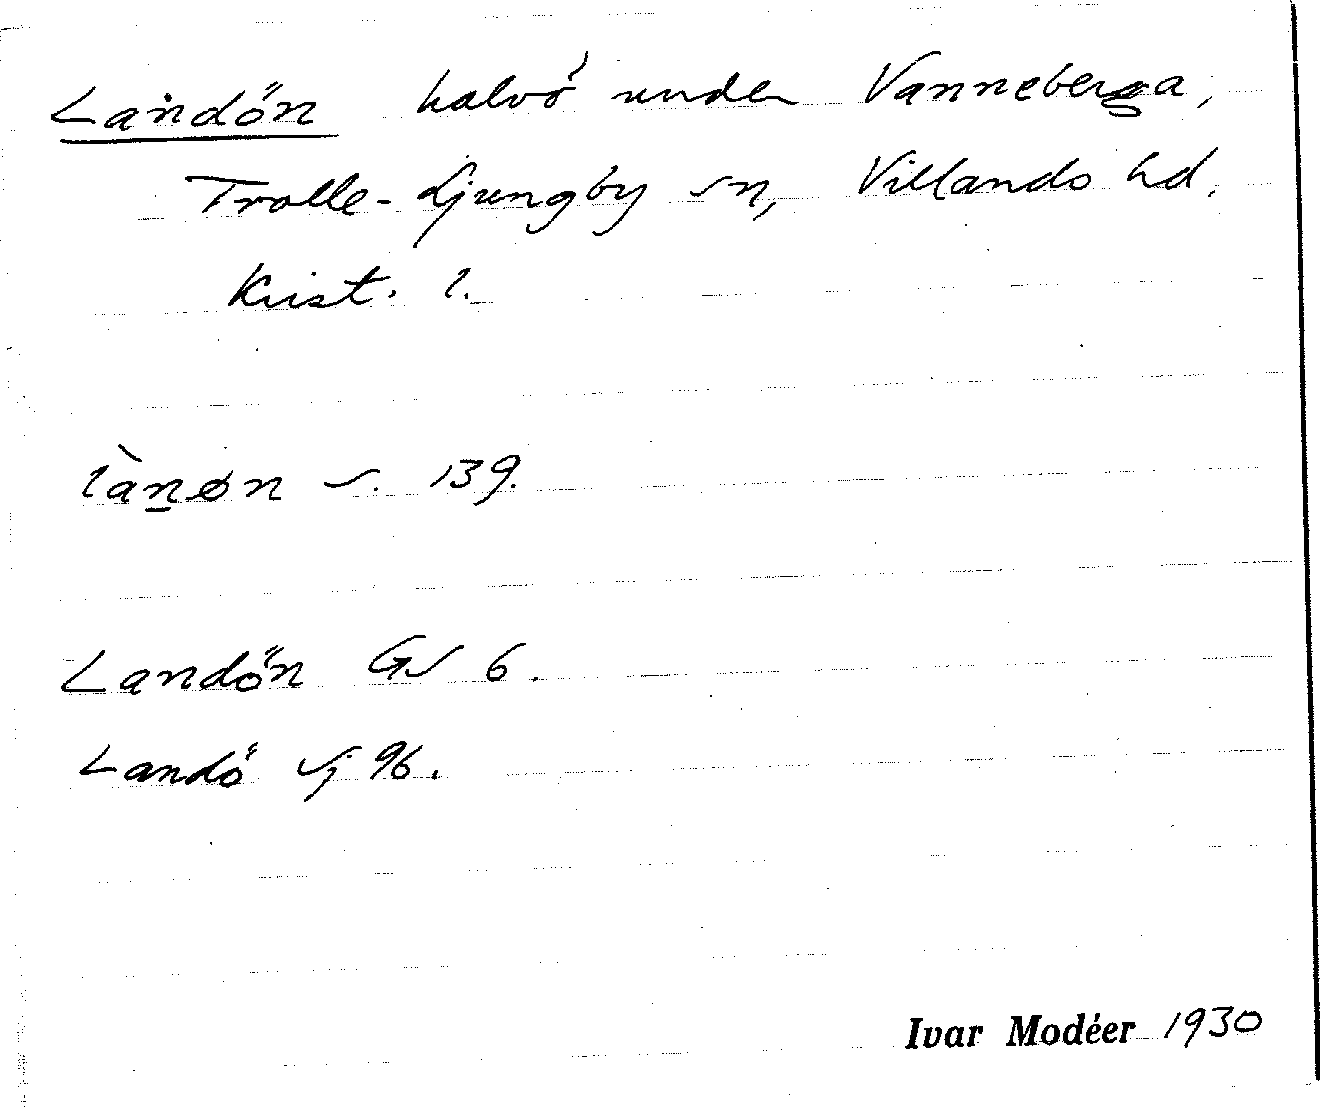 Landön halvö under Vanneberga,
Trolle-Ljungby sn, Villands hd,
Krist. l.
làṉøn s. 139.
Landön GS 6.
Landö Sj 96.
Ivar Modéer 1930